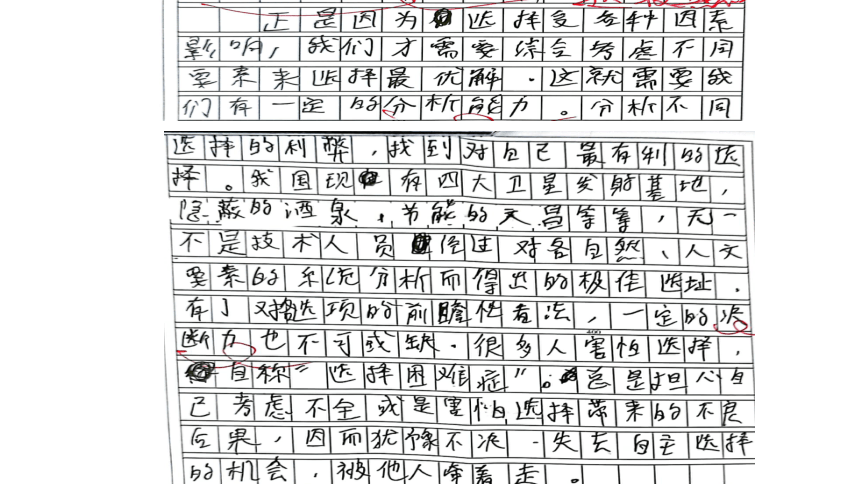 正是因为选择受各种因素
影响，我们才需要综合考虑不同
要素来选择最优解．这就需要我
们有一定的分析能力。分析不同
选择的利弊，找到对自己最有利的选
择。我国现有四大卫星发射基地，
隐蔽的酒泉，节能的文昌等等，无一
不是技术人员经过对各自然、人文
要素的系统分析而得出的极佳选址．
有了对选项的前瞻性看法，一定的决
断力也不可或缺．很多人害怕选择，
自称“选择困难症”。总是担心自
己考虑不全或是害怕选择带来的不良
后果，因而犹豫不决．失去自主选择
的机会，被他人牵着走。